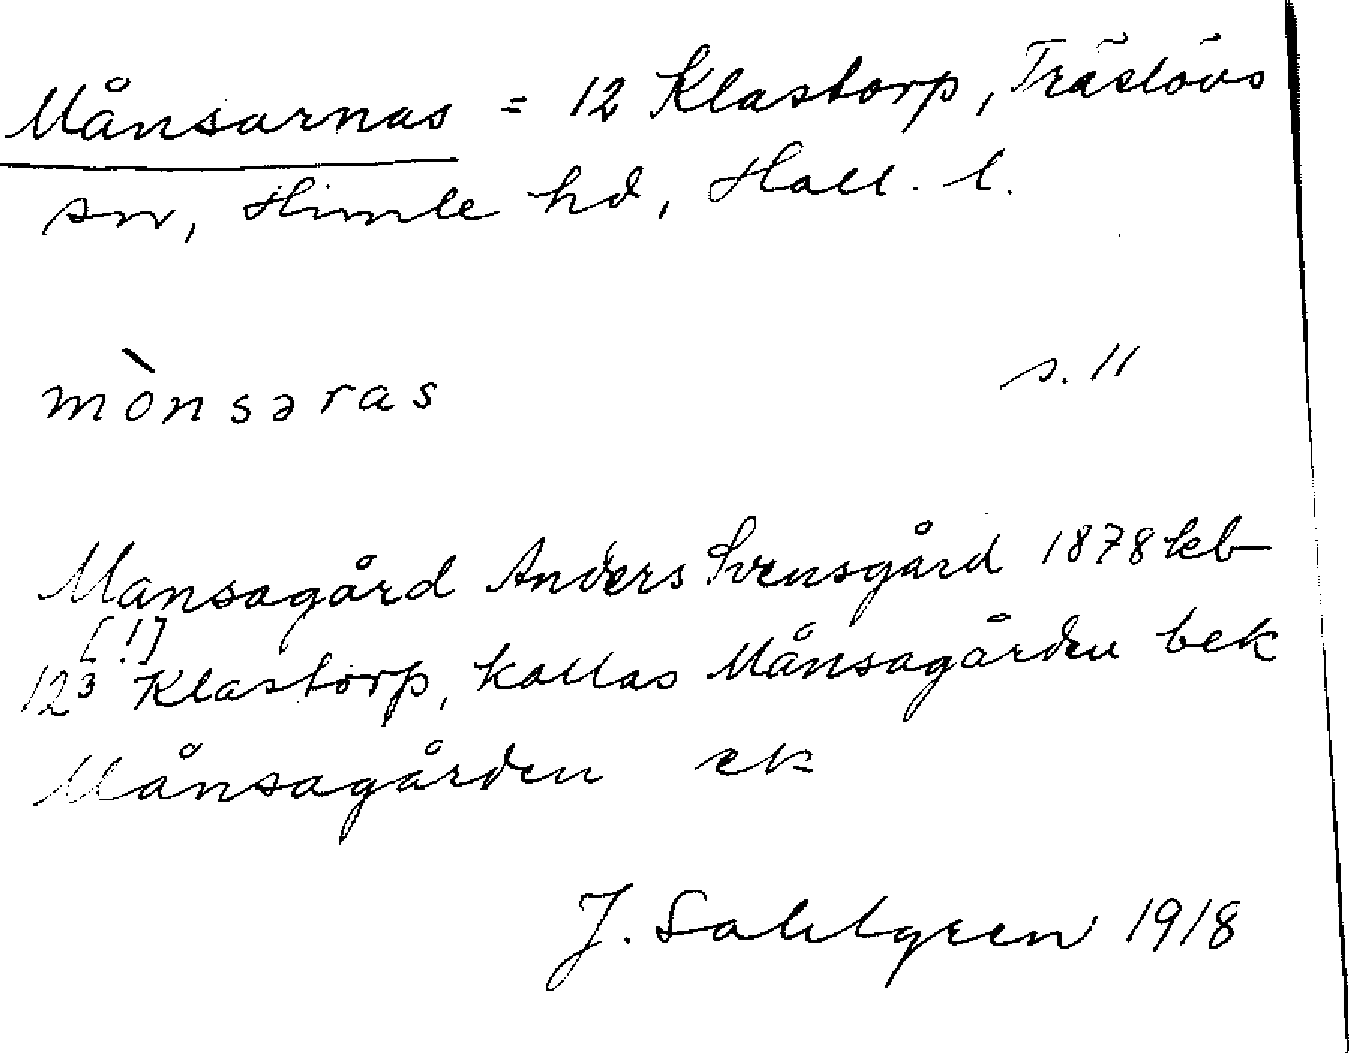 Månsarnas = 12 Klastorp, Träslövs
sn, Himle hd, Hall. l.
mònsəras s. 11
Mansagård Anders Svensgård 1878 kb
[!]
12³ Klastorp, kallas Månsagården bek
Månsagården ek
J. Sahlgren 1918